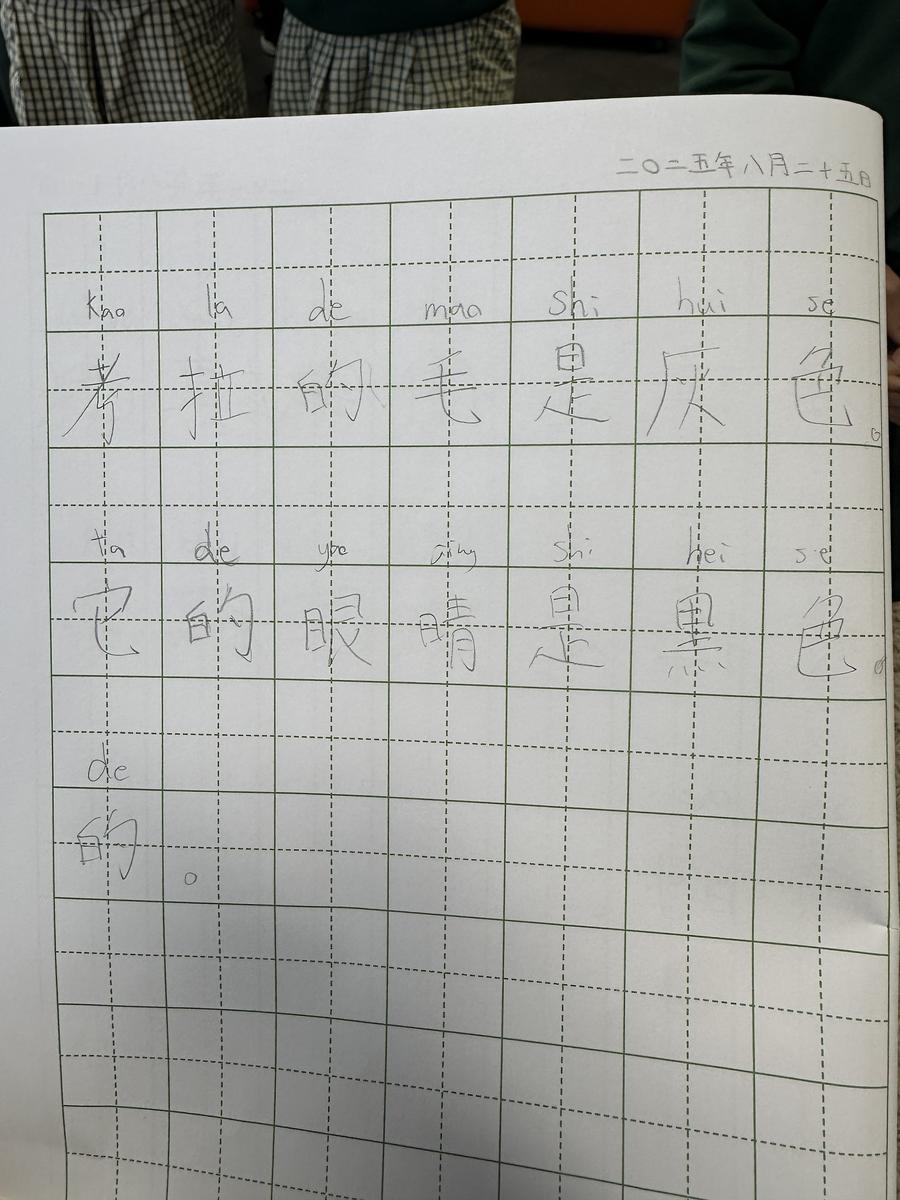 二〇二五年八月二十五日
kao la de mao shi hui se
考拉的毛是灰色。
ta de yae jing shi hei se
它的眼睛是黑色。
de
的。